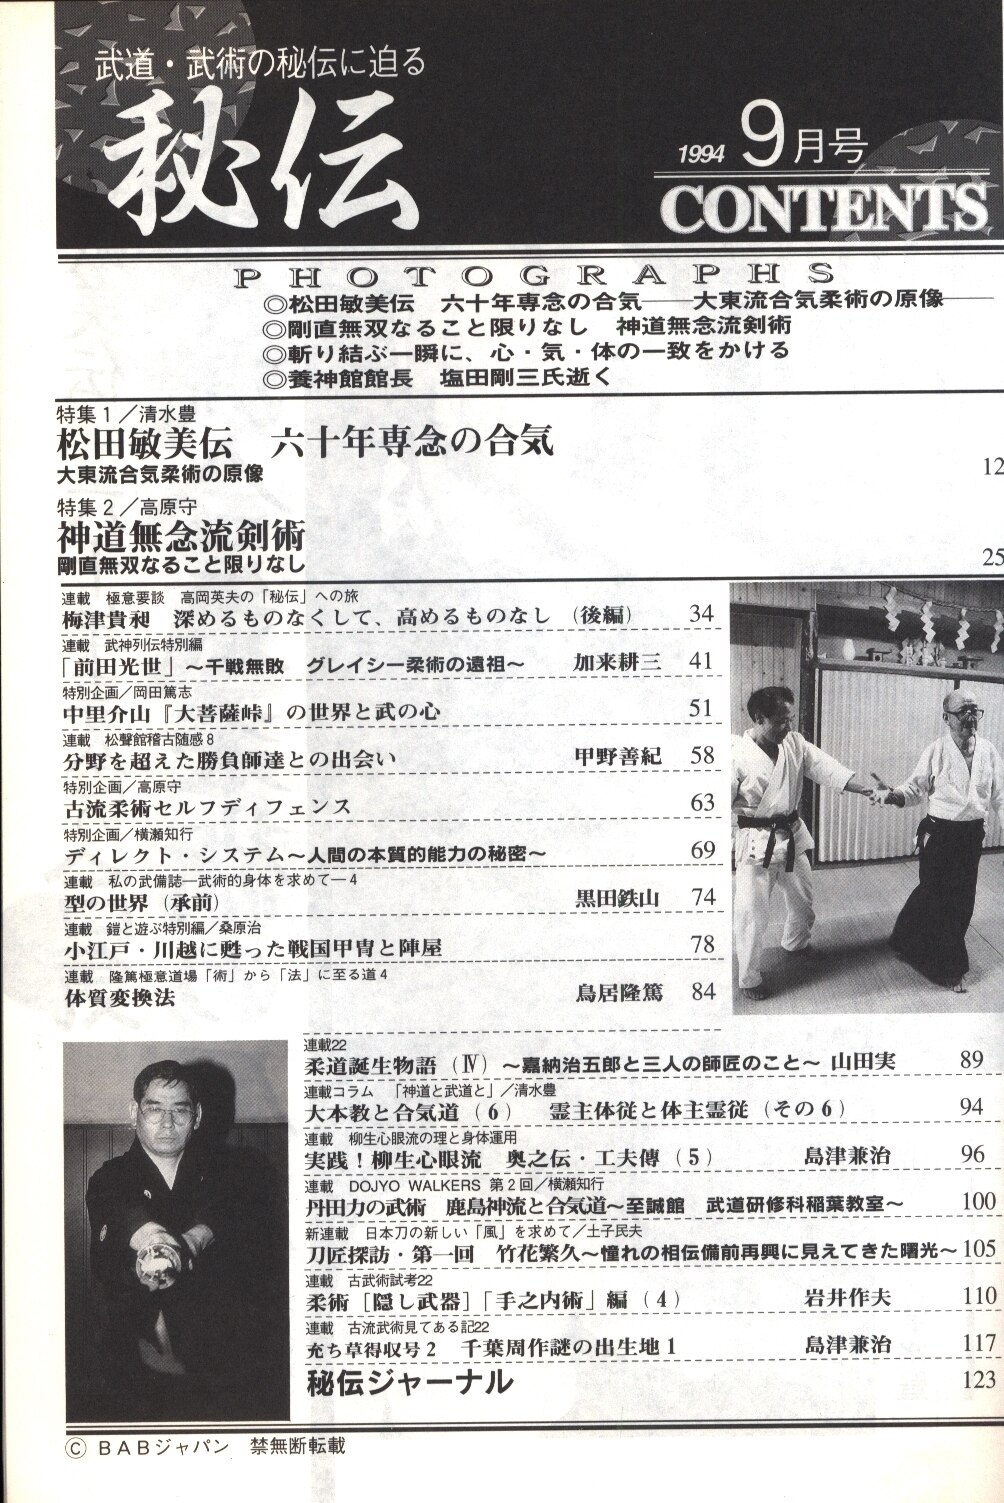 武道・武術の秘伝に迫る
秘伝
1994 9月号
CONTENTS
PHOTOGRAPHS
◎松田敏美伝　六十年専念の合気──大東流合気柔術の原像──
◎剛直無双なること限りなし　神道無念流剣術
◎斬り結ぶ一瞬に、心・気・体の一致をかける
◎養神館館長　塩田剛三氏逝く
特集1／清水豊
松田敏美伝　六十年専念の合気
大東流合気柔術の原像
12
特集2／高原守
神道無念流剣術
剛直無双なること限りなし
25
連載　極意要談　高岡英夫の「秘伝」への旅
梅津貴昶　深めるものなくして、高めるものなし（後編）　34
連載　武神列伝特別編
「前田光世」～千戦無敗　グレイシー柔術の遠祖～　加来耕三　41
特別企画／岡田篤志
中里介山『大菩薩峠』の世界と武の心　51
連載　松聲館稽古随感8
分野を超えた勝負師達との出会い　甲野善紀　58
特別企画／高原守
古流柔術セルフディフェンス　63
特別企画／横瀬知行
ディレクト・システム～人間の本質的能力の秘密～　69
連載　私の武備誌―武術的身体を求めて―4
型の世界（承前）　黒田鉄山　74
連載　鎧と遊ぶ特別編／桑原治
小江戸・川越に甦った戦国甲冑と陣屋　78
連載　隆篤極意道場「術」から「法」に至る道4
体質変換法　鳥居隆篤　84
連載22
柔道誕生物語（Ⅳ）～嘉納治五郎と三人の師匠のこと～　山田実　89
連載コラム　「神道と武道と」／清水豊
大本教と合気道（6）　霊主体従と体主霊従（その6）　94
連載　柳生心眼流の理と身体運用
実践！柳生心眼流　奥之伝・工夫傳（5）　島津兼治　96
連載　DOJYO WALKERS 第2回／横瀬知行
丹田力の武術　鹿島神流と合気道～至誠館　武道研修科稲葉教室～　100
新連載　日本刀の新しい「風」を求めて／土子民夫
刀匠探訪・第一回　竹花繁久～憧れの相伝備前再興に見えてきた曙光～　105
連載　古武術試考22
柔術［隠し武器］「手之内術」編（4）　岩井作夫　110
連載　古流武術見てある記22
充ち草得収号2　千葉周作謎の出生地1　島津兼治　117
秘伝ジャーナル　123
© BABジャパン　禁無断転載